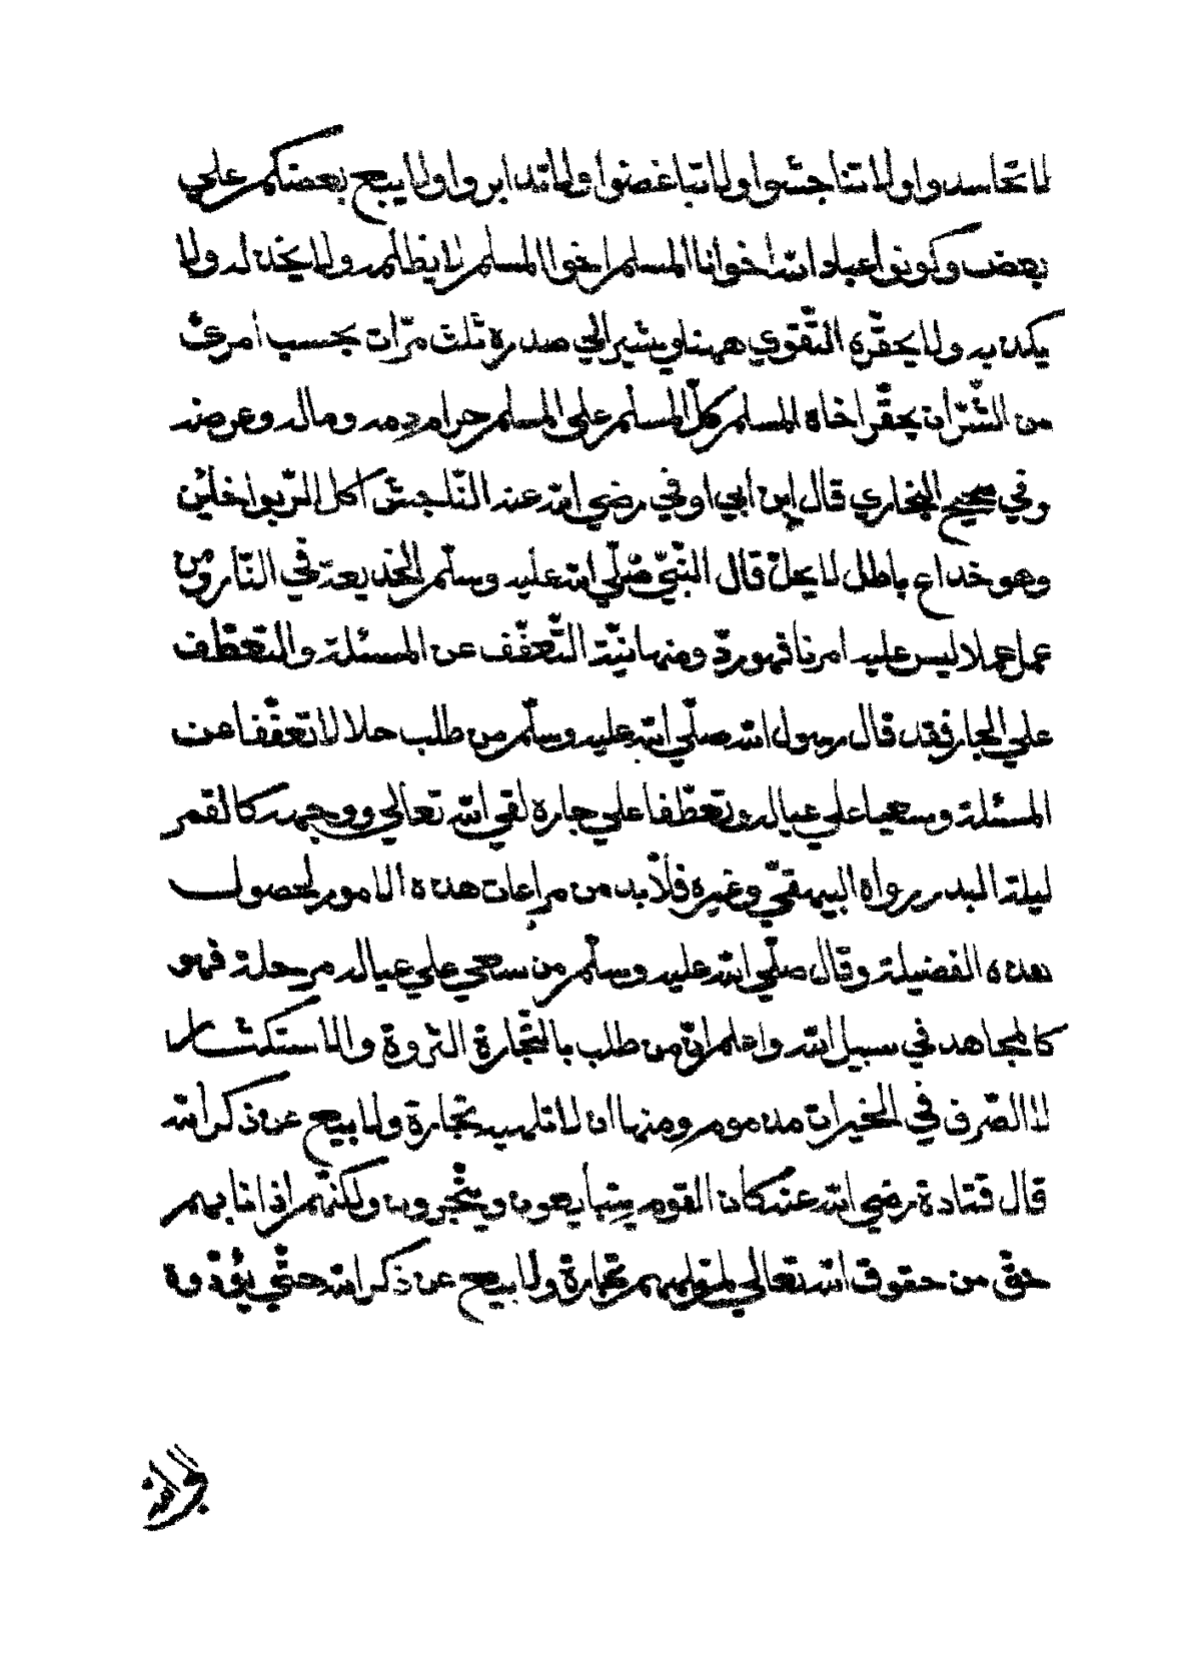 لا تحاسدوا ولا تناجشوا ولا تباغضوا ولا تدابروا ولا يبيع بعضكم علي
بعض وكونوا عباد الله اخوانا المسلم اخوا المسلم لا يظلمه ولا يخذله ولا
يكذبه ولا يحقّره التّقوي ههنا ويشير الي صدره ثلث مرّات بحسب امرئ
من الشّرّ ان يحقّر اخاه المسلم كلّ المسلم علي المسلم حرام دمه وماله وعرضه
وفي صحيح البخاري قال ابن ابي اوفي رضي الله عنه النّاجش اكل الرّبوا خائن
وهو خداع باطل لا يحلّ قال النّبيّ صلّي الله عليه وسلّم الخديعة في النّار ومن
عمل عملا ليس عليه امرنا فهو ردّ ومنها نيّة التّعفّف عن المسئلة والتعطّف
علي الجار فقد قال رسول الله صلّي الله عليه وسلّم من طلب حلالا تعفّفا عن
المسئلة وسعيا علي عياله وتعطّفا علي جاره لقي الله تعالي ووجهه كالقمر
ليلة البدر رواه البيهقيّ وغيره فلا بد من مراعات هذه الامور لحصول
هذه الفضيلة وقال صلّي الله عليه وسلّم من سعي علي عياله من حلة فهو
كالمجاهد في سبيل الله واعلم انّ من طلب بالتّجارة الثروة والاستكثار
لا الصّرف في الخيرات مذموم ومنها ان لا تلهيه تجارة ولا بيع عن ذكر الله
قال قتادة رضي الله عنه كان القوم يتبايعون ويتّجرون ولكنّهم اذا نابهم
حقّ من حقوق الله تعالي لم تلههم تجارة ولا بيع عن ذكر الله حتّي يؤدّوه